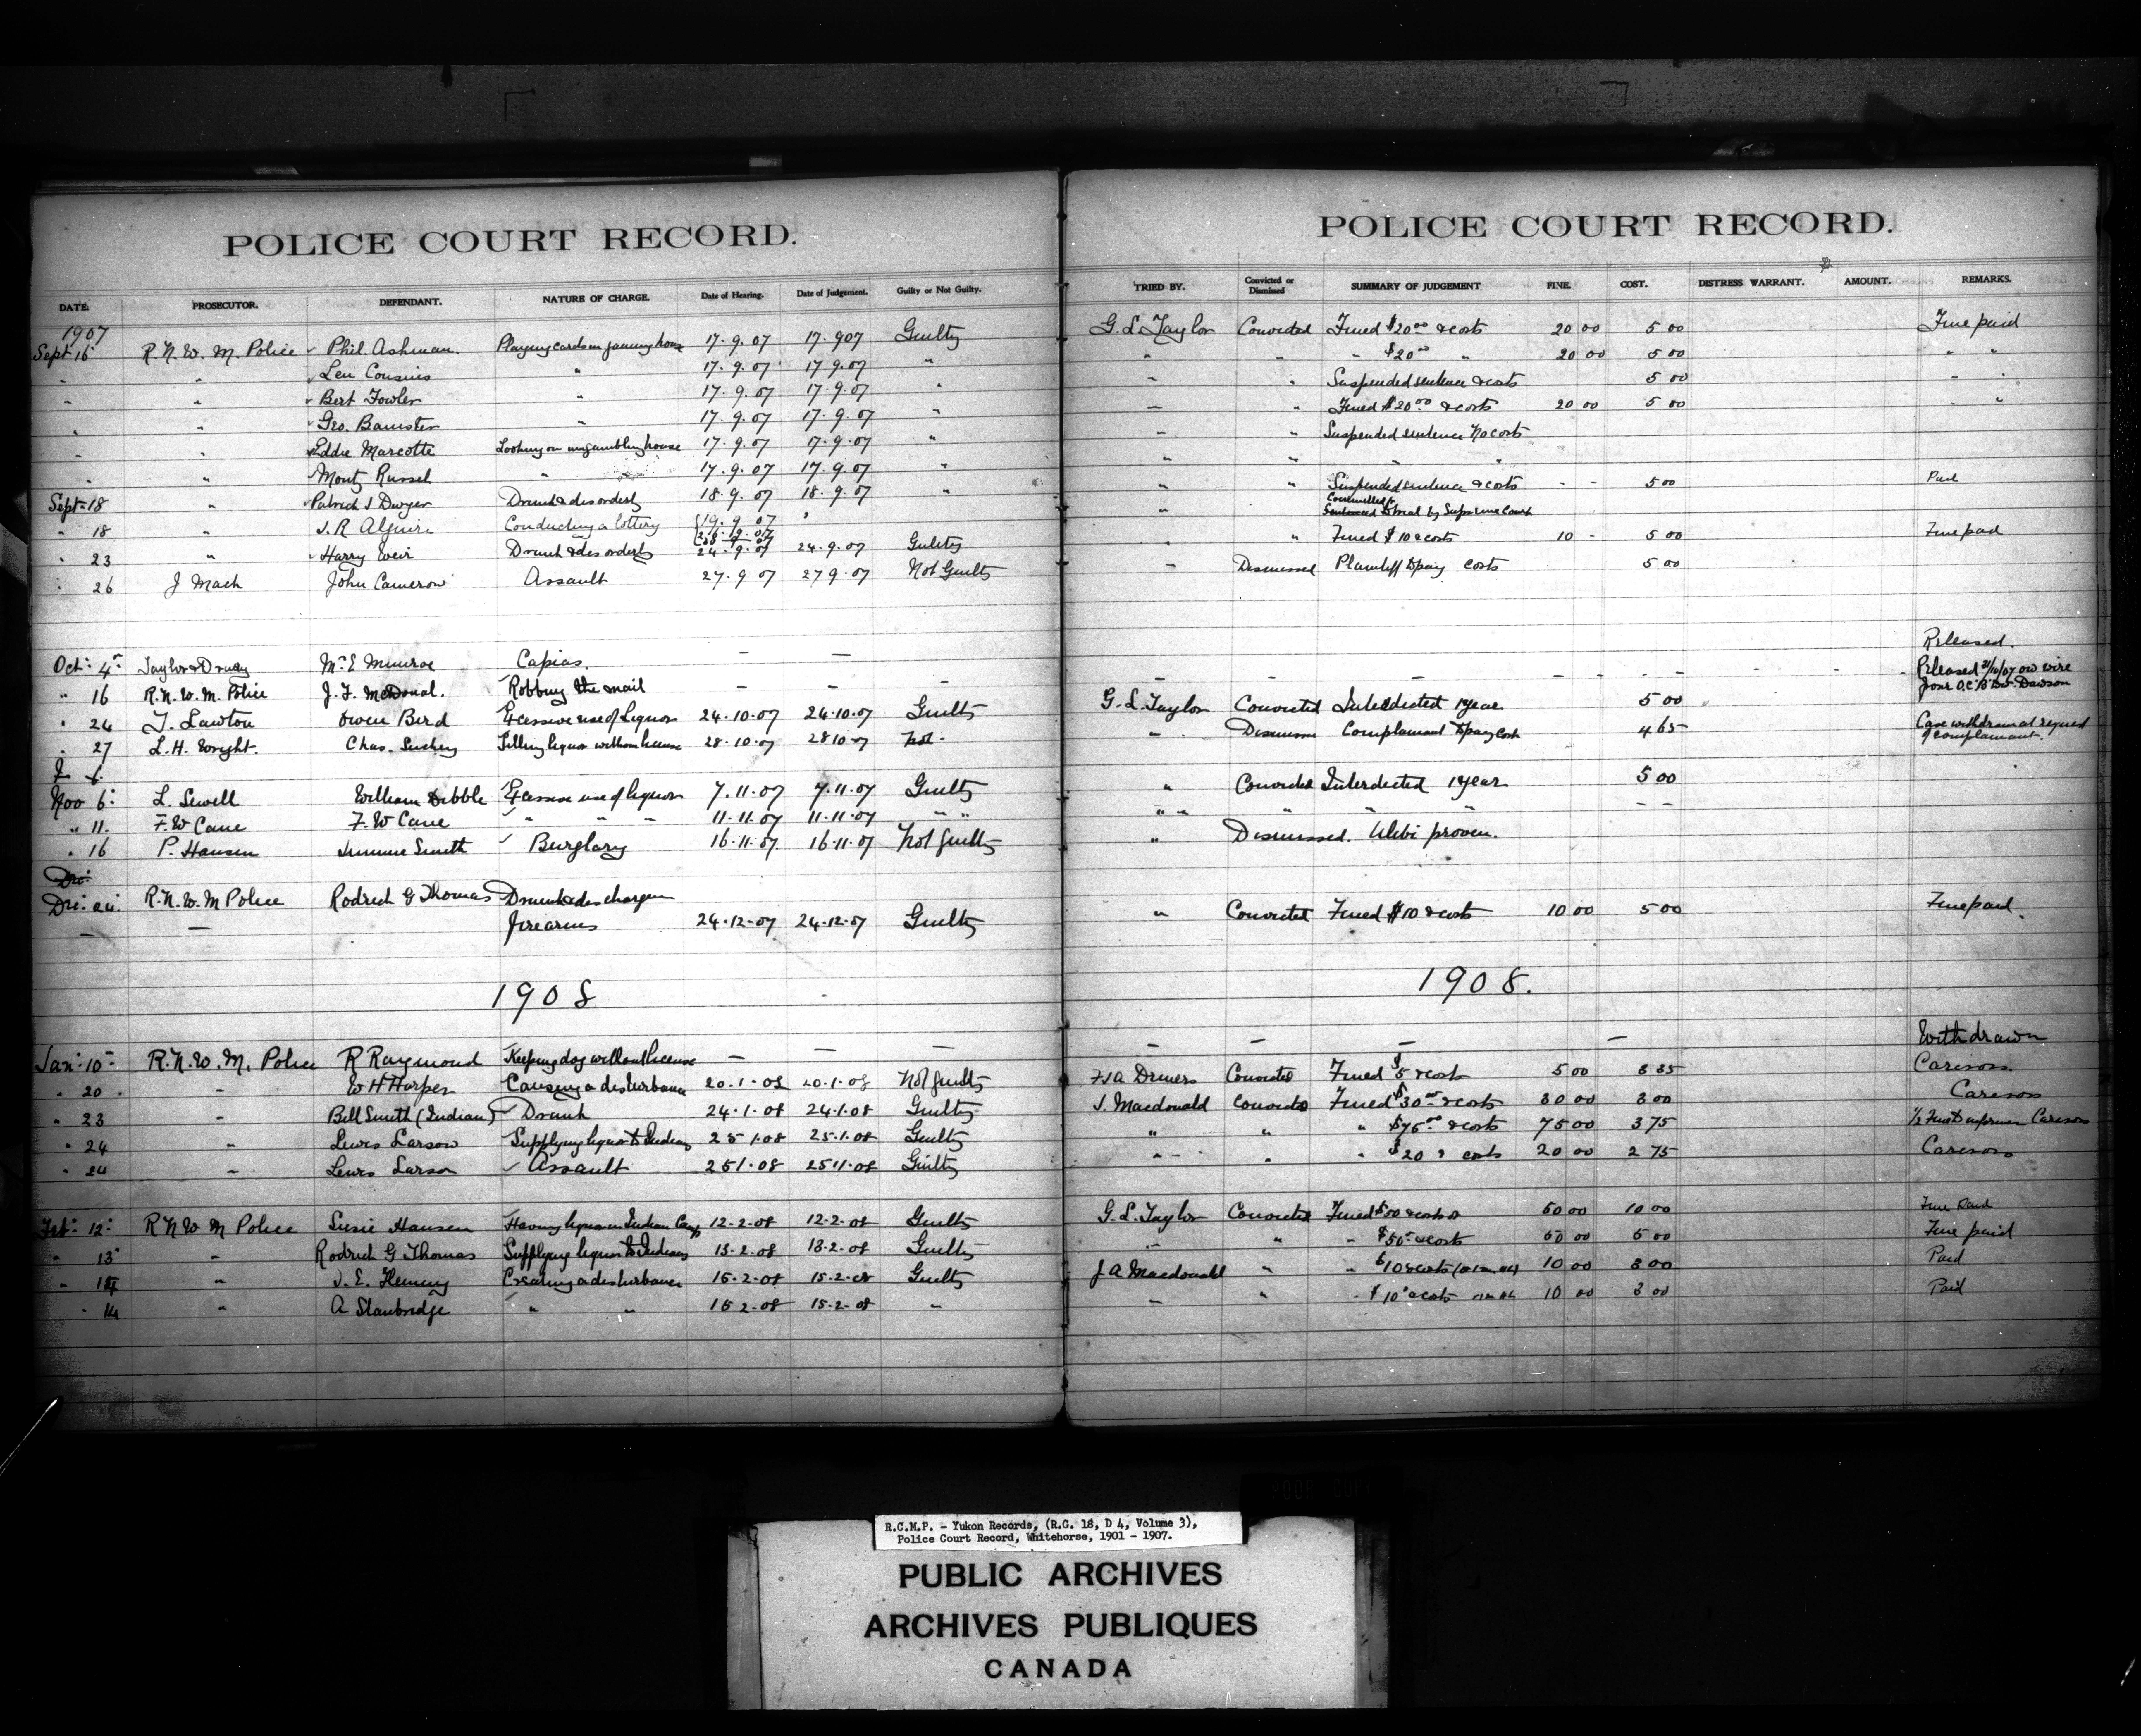 POLICE COURT RECORD.
DATE. PROSECUTOR. DEFENDANT. NATURE OF CHARGE. Date of Hearing. Date of Judgement. Guilty or Not Guilty.
1907
Sept 16 R.N.W.M. Police Phil Ashman. Playing cards in gaming house 17.9.07 17.907 Guilty
" " Len Cousins " 17.9.07 17.9.07 "
" " Bert Fowler " 17.9.07 17.9.07 "
" " Geo. Banister " 17.9.07 17.9.07 "
" " Eddie Marcotte Looking on in gambling house 17.9.07 17.9.07 "
" " Monty Russel " 17.9.07 17.9.07 "
Sept 18 " Patrick J Dwyer Drunk & disorderly 18.9.07 18.9.07 "
" 18 " J.R Alguire Conducting a lottery 19.9.07
" 23 " Harry Weir Drunk & disorderly 24.9.07 24.9.07 Guilty
" 26 J Mack John Cameron Assault 27.9.07 27.9.07 Not Guilty
Oct. 4 Taylor & Drury Mc.E Munroe Capias. — —
" 16 R.N.W.M. Police J.F. McDonal. Robbing the mail — — —
" 24 T. Lawton Owen Bird Excessive use of Liquor 24.10.07 24.10.07 Guilty
" 27 L.H. Wright. Chas. Selling liquor without license 28.10.07 28 10 07 Not.
Nov 6. L. Sewell William Dibble Excessive use of liquor 7.11.07 7.11.07 Guilty
" 11. F.W Cane F.W Cane " " " 11.11.07 11.11.07 " "
" 16 P. Hansen Jimmie Smith Burglary 16.11.07 16.11.07 Not Guilty
Dec.
Dec. 24. R.N.W.M Police Rodrick G Thomas Drunk & discharging
— — firearms 24.12.07 24.12.07 Guilty
1908
Jan. 10 R.N.W.M. Police R Raymond Keeping dog without license — — —
" 20 " W H Harper Causing a disturbance 20.1.08 20.1.08 Not guilty
" 23 " Bill Smith (Indian) Drunk 24.1.08 24.1.08 Guilty
" 24 " Lewis Larsow Supplying liquor to Indian 25 1.08 25.1.08 Guilty
" 24 " Lewis Larson Assault 251.08 2511.08 Guilty
Feb. 12. R N W M Police Susie Hansen Having liquor in Indian Camp 12-2-08 12-2-08 Guilty
" 13 " Rodrick G Thomas Supplying liquor to Indians 13-2-08 13-2-08 Guilty
" 14 " J.E. Fleming Creating a disturbance 15-2-08 15-2-08 Guilty
" 14 " A Stanbridge " " 15 2-08 15-2-08 "
POLICE COURT RECORD.
TRIED BY. Convicted or Dismissed SUMMARY OF JUDGEMENT FINE. COST. DISTRESS WARRANT. AMOUNT. REMARKS.
G.L Taylor Convicted Fined $20.00 & costs 20 00 5 00 Fine paid
" " " $20.00 " 20 00 5 00 " "
" " Suspended sentence & costs 5 00 " "
" " Fined $20.00 & costs 20 00 5 00 "
" " Suspended sentence No costs
" " " "
" " Suspended sentence & costs - - 5 00 Paid
" Committed for trial by Supreme Court
" " Fined $10 & costs 10 - 5 00 Fine paid
" Dismissed Plaintiff to pay costs 5 00
Released.
— — — — — Released 21/10/07 on wire
from O.C. "B" Div. Dawson
G.L. Taylor Convicted Interdicted 1 year 5 00
" Dismissed Complainant to pay cost 4 65 Case withdrawn at request
of complainant.
" Convicted Interdicted 1 year 5 00
" " " " " — —
" Dismissed. Alibi proven.
" Convicted Fined $10 & costs 10 00 5 00 Fine paid.
1908.
— — — — Withdrawn
Convicted Fined $5 & costs 5 00 3 35
J. Macdonald Convicted Fined $30.00 & costs 30 00 3 00
" " " $75.00 & costs 75 00 3 75
" " " $20 & costs 20 00 2 75
G.L. Taylor Convicted Fined & costs 50 00 10 00 Fine Paid
" " " $50 & costs 50 00 5 00 Fine paid
J A Macdonald " " $10 & costs 10 00 3 00 Paid
" " " $10 & costs 10 00 3 00 Paid
R.C.M.P. - Yukon Records, (R.G. 18, D 4, Volume 3),
Police Court Record, Whitehorse, 1901 - 1907.
PUBLIC ARCHIVES
ARCHIVES PUBLIQUES
CANADA